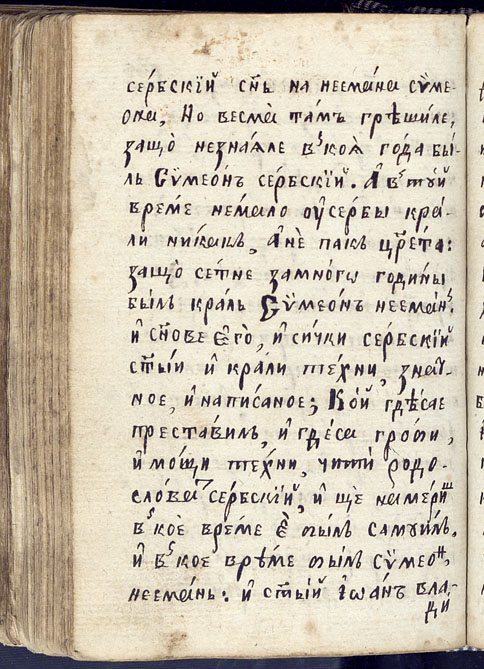 се́рбскїй сн҃ъ на неема́на сѷме-
она, Но весма̀ та́мъ грѣши́ле,
защо̀ незна́яле въкоѧ̀ го́да бы-
лъ Сѷмео́нъ се́рбскїй. А҆ въ то́й
вре́ме нема́ло ѹ҆се́рбы кра́-
ли ника́къ, а҆ нѐ па́къ цр҃е́та:
защо̀ се́тне замно́гѡ годи́ны
бы́лъ кра́ль Сѷмео́нъ неема́нъ.
и҆ сн҃ове є҆го̀, и҆ си́чки се́рбскїй
ст҃ы́и и҆ кра́ли те́хни, зна́й-
ное, и҆ напи́саное; Ко́й гдѣ́сае
преста́вилъ, и҆ где́са гро́би,
и҆ мо́щи те́хни, читѝ родо-
сло́ва се́рбскїй, и҆ щѐ намери́ш
въкоѐ вре́ме є҆̀ бы́лъ самѹи́лъ,
и҆ въ кое вре́ме бы́лъ сѷмео́н,
неема́нь: и҆ ст҃ы́й і҆ѡа́нъ вла-
ди